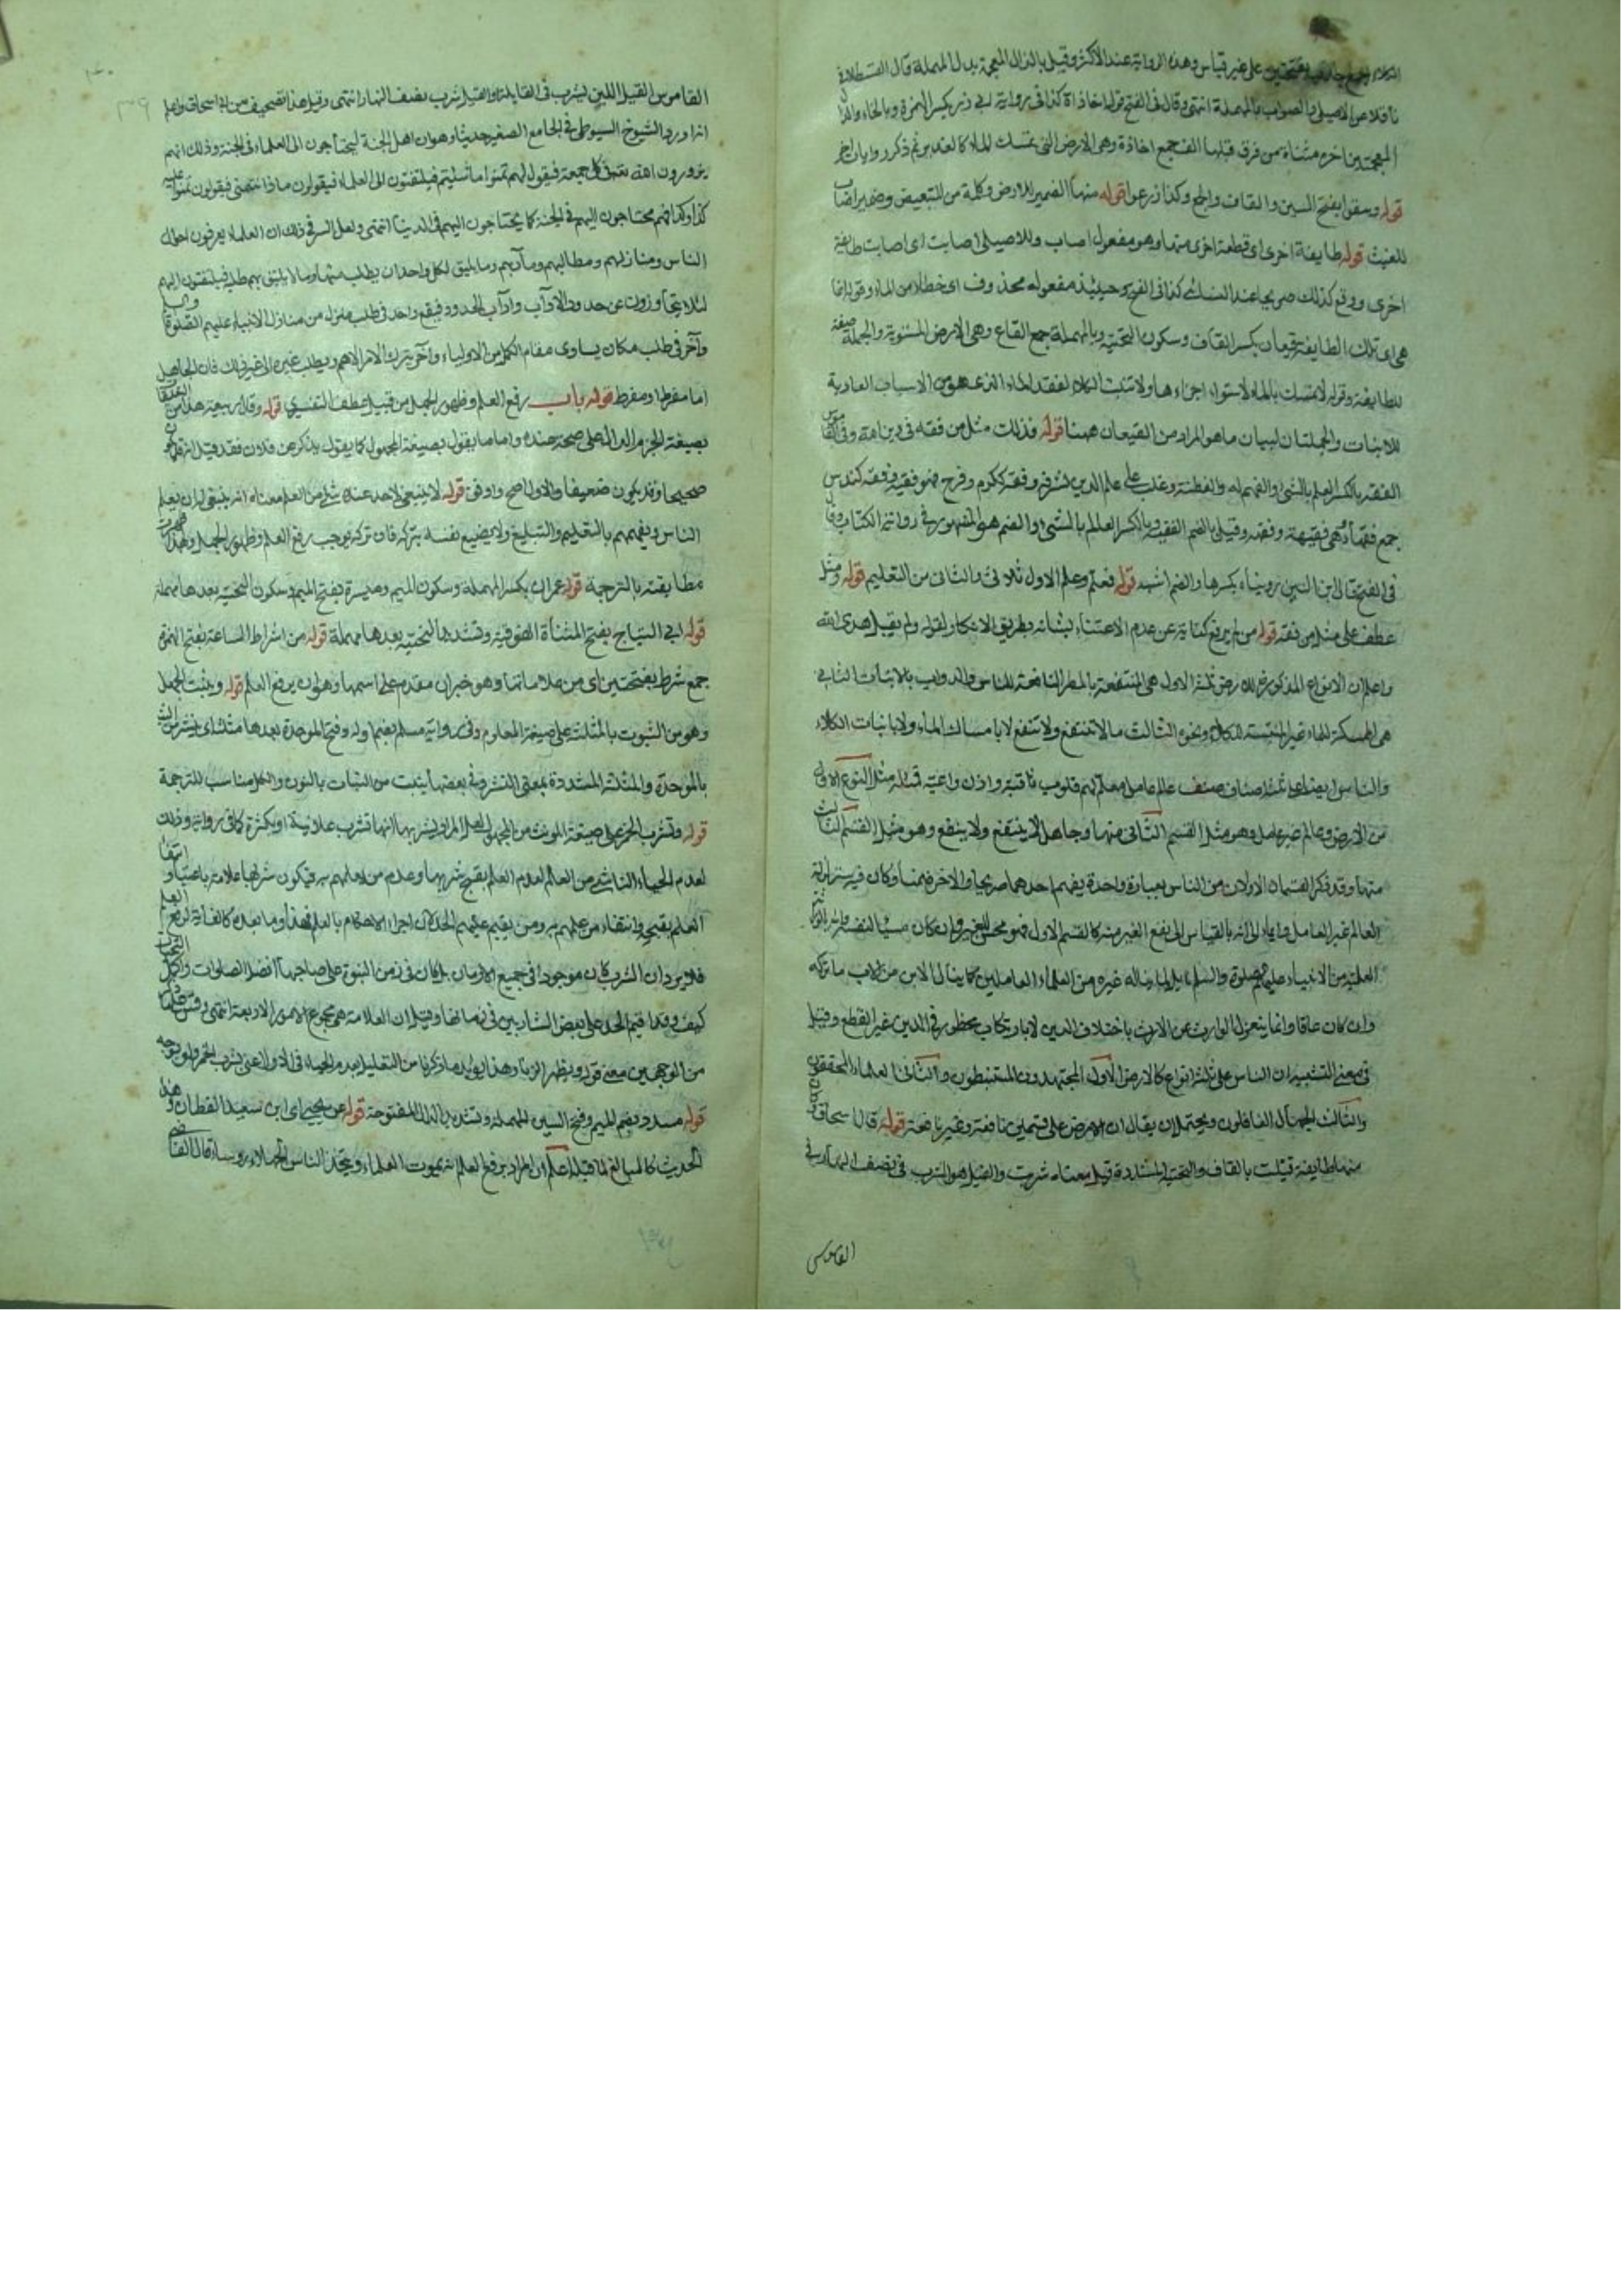 على غير قياس وهذه الرواية عند الاكثر وقيل بالذال المعجمة بدل المهملة قال القسطلاني
ناقلا عن الاصيلي والصواب بالمهملة انتهى وقال في الفتح قوله اخاذاة كذا في رواية ابي ذر بكسر الهمزة وبالخاء والذال
المعجمتين اخره مثناة من فوق قبلها الف جمع اخاذة وهي الارض التي تمسك الماء كالغدير ثم ذكر روايات اخر
قوله وسقوا بفتح السين والقاف والجم وكذا زرعوا قوله منها الضمير للارض وكلمة من للتبعيض وضمير اصاب
للغيث قوله طايفة اخرى اي قطعة اخرى منها وهو مفعول اصاب وللاصيلي اصابت اي اصابت طايفة
اخرى ووقع كذلك صريحا عند النسائي كذا في الفتح وحينئذ مفعوله محذوف اي خطا من الماء وقوله انما
هي اي تلك الطايفة قيعان بكسر القاف وسكون التحتية وبالمهملة جمع القاع وهي الارض المستوية والجملة صفة
للطايفة وقوله لا تمسك بالماء لاستواء اجزاءها ولا تنبت الكلاء لفقد الماء الذي هو من الاسباب العادية
للانبات والجملتان لبيان ما هو المراد من القيعان ههنا قوله فذلك مثل من فقه في دين الله وفي القاموس
الفقه بالكسر العلم بالشئ والفهم له والفطنة وغلب على علم الدين لشرفه وفقه ككرم وفرح فهو فقيه وفقه كندس
جمع فقهاء وهي فقيهة وفقه وقيل بالضم الفقيه وبالكسر العالم بالشئ والضم هو المشهور في رواية الكتاب وقال
في الفتح قال ابن التين رويناه بكسرها والضم اشبه قوله فعلم وعلم الاول ثلاثي والثاني من التعليم قوله ومثل
عطف على مثل من فقه قوله من لم يرفع كناية عن عدم الاعتناء بشانه بطريق الانكار لقوله ولم يقبل هدى الله
واعلم ان الانواع المذكورة للارض ثلثة الاول هي المنتفعة بالمطر النافعة للناس والدواب بالانبات الثاني
هي الممسكة للماء غير المنبتة للكلاء ونحوه الثالث ما لا تنتفع ولا تنفع لا بامساك الماء ولا بانبات الكلاء
والناس ايضا على ثلثة اصناف صنف عالم عامل معلم لهم قلوب ثاقبة واذان واعية قبله مثل النوع الاول
من الارض وعالم غير عامل وهو مثل القسم الثاني منها وجاهل لا ينتفع ولا ينفع وهو مثل القسم الثالث
منها وقد ذكر القسمان الاولان من الناس بعبارة واحدة يفهم احدهما صريحا والاخر ضمنا وكان فيه تنزلة
العالم غير العامل وايماء الى انه بالقياس الى نفع الغير منه كالقسم الاول فهو محسن للغير وان كان مسيئا لنفسه
العلية من الانبياء عليهم الصلوة والسلام يناله غيره من العلماء العاملين كما ينال الابن من الاب ما تركه
وان كان عاقا وانما ينعزل الوارث عن الارث باختلاف الدين لا بارتكاب محظور في الدين غير القطع وقيل
في معنى التشبيه ان الناس على ثلثة انواع كالارض الاول المجتهدون المستنبطون والثاني العلماء المحققون
والثالث الجهال الغافلون ويحتمل ان يقال ان الارض على قسمين نافعة وغير نافعة قوله قال اسحاق وكان
منها طايفة قيلت بالقاف والتحتية المشددة قيل معناه شربت والقيل هو الشرب في نصف النهار في
القاموس
القاموس القيل اللبن يشرب في القايلة او القيل شرب نصف النهار انتهى وقيل هذا تصحيف من اسحاق واعلم
انه اورد الشيوخ السيوطي في الجامع الصغير حديثا وهو ان اهل الجنة ليحتاجون الى العلماء في الجنة وذلك انهم
يزورون الله تعالى في كل جمعة فيقول لهم تمنوا ما شئتم فيلتفتون الى العلماء فيقولون ماذا نتمنى فيقولون تمنوا عليه
كذا وكذا فهم محتاجون اليهم في الجنة كما يحتاجون اليهم في الدنيا انتهى ولعل السر في ذلك ان العلماء يعرفون احوال
الناس ومنازلهم ومطالبهم ومآربهم وما يليق لكل واحد ان يطلب منها وما لا يليق بهم طلبه فيلتفتون اليهم
لئلا يتجاوزون عن حدود الآداب وآداب الحدود فيقع واحد في طلب منزل من منازل الانبياء عليهم الصلوة والسلام
وآخر في طلب مكان يساوي مقام الكمل من الاولياء وآخر يترك الامر الاهم ويطلب غيره الى غير ذلك فان الجاهل
اما مفرط او مفرط قوله باب رفع العلم وظهور الجهل من قبيل عطف التفسيري قوله وقال ربيعة هذا من التعليق
بصيغة الجزم الدال على صحته عنده واما ما يقول بصيغة المجهول كما يقول يذكر عن فلان فقد قيل انه قد يكون
صحيحا وقد يكون ضعيفا والاول اصح واوفق قوله لا ينبغي لاحد عنده شئ من العلم معناه انه ينبغي له ان يعلم
الناس ويفهمهم بالتعليم والتبليغ ولا يضيع نفسه بتركه فان تركه يوجب رفع العلم وظهور الجهل وبهذا ظهرت
مطابقته بالترجمة قوله عمران بكسر المهملة وسكون الميم وميسرة بفتح الميم وسكون التحتية بعدها مهملة
قوله ابي التياح بفتح المثناة الفوقية وتشديد التحتية بعدها مهملة قوله من اشراط الساعة بفتح الهمزة
جمع شرط بفتحتين اي من علاماتها وهو خبر ان مقدم على اسمها وهو ان يرفع العلم قوله ويثبت الجهل
وهو من الثبوت بالمثلثة على صيغة المعلوم وفي رواية مسلم بضم اوله وفتح الموحدة بعدها مثلثة اي ينتشر من البث
بالموحدة والمثلثة المشددة بمعنى النشر وفي بعضها ينبت من النبات بالنون والكل مناسب للترجمة
قوله وتشرب الخمر على صيغة المونث من المجهول لعل المراد بشربها انها تشرب علانية او بكثرة كما في رواية وذلك
لعدم الحياء الناشي من العالم لعدم العلم بقبح شربها وعدم من يعلمهم به فيكون شربها علامة باعتبار انتفاء
العلم بقبحه وانتفاء من يعلمهم به ومن يقيم عليهم الحد لان اجراء الاحكام بالعلم فهذا وما بعده كالغاية لرفع العلم
فلا يرد ان الشرب كان موجودا في جميع الازمان بل كان في زمن النبوة على صاحبها افضل الصلوات واكمل التحيات
كيف وقد اقيم الحد على بعض الشاربين في زمانها وقيل ان العلامة هي مجموع الامور الاربعة انتهى وقس على ما قلنا
من الوجهين معنى قوله ويظهر الزنا وهذا يؤيد ما ذكرنا من التعليل بعدم الحياء في الاول اعني شرب الخمر
قوله مسدد بضم الميم وفتح السين المهملة وتشديد الدال المفتوحة قوله عن يحيى اي ابن سعيد القطان وهذا
الحديث كالمبالغ لما قبله اعلم ان المراد برفع العلم انه يموت العلماء ويتخذ الناس الجهلاء روساء قال القاضي